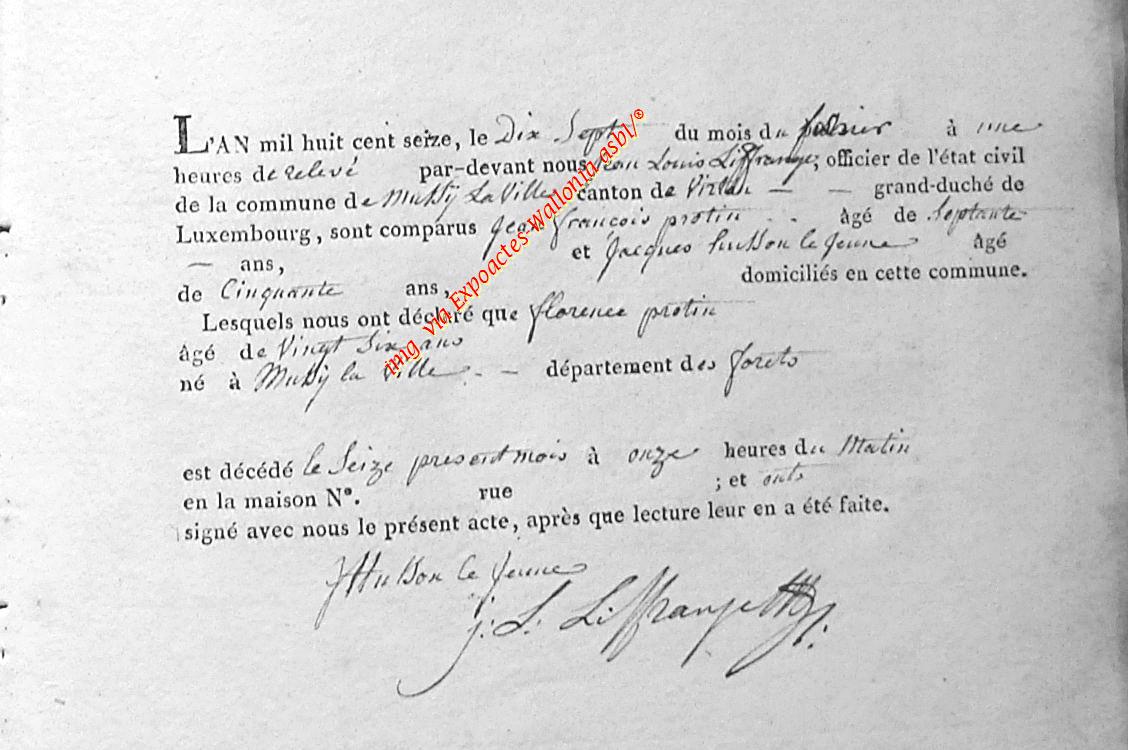 L'AN mil huit cent seize, le Dix Sept du mois du à une
heures de relevé par-devant nous Jean Louis Liffrange, officier de l'état civil
de la commune de Mussÿ La Ville canton de Virton — — grand-duché de
Luxembourg, sont comparus Jean françois protin - - âgé de Septante
— ans, et Jacques husson le Jeune âgé
de Cinquante ans, domiciliés en cette commune.
Lesquels nous ont déclaré que florence protin
âgé de Vingt Six ans
né à Mussÿ la Ville - — département des forets
est décédé le Seize present mois à onze heures du Matin
en la maison N°. rue ; et onts
signé avec nous le présent acte, après que lecture leur en a été faite.
JHusson le Jeune
j: L: Liffrange
img via Expoactes-Wallonia asbl/®